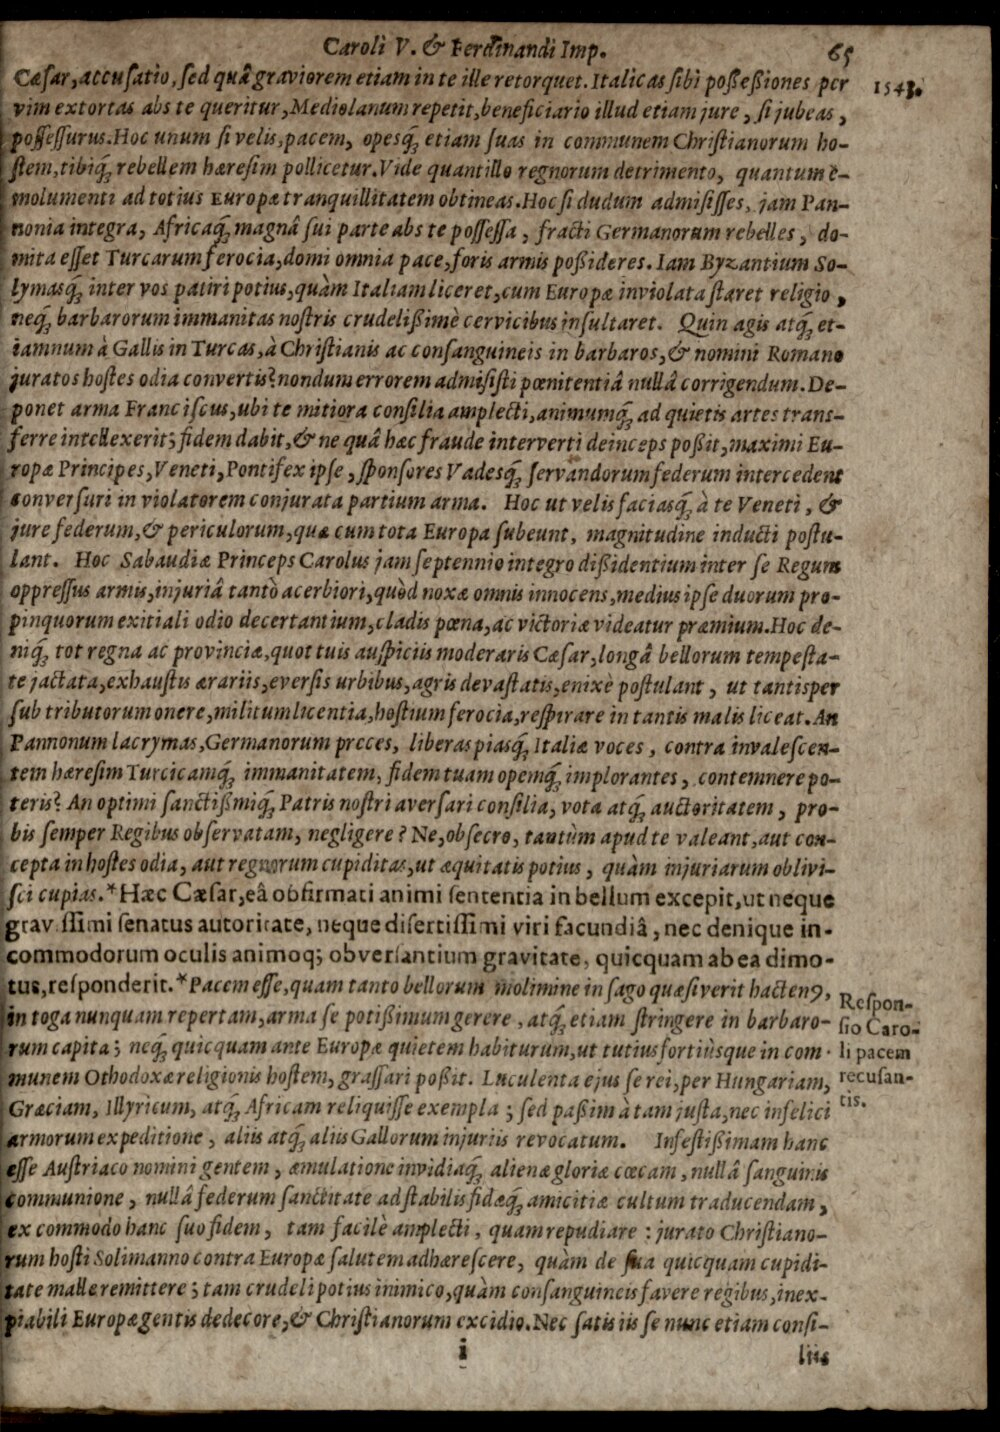 Caroli V. & Ferdinandi Imp. 65
Cæsar, accusatio, sed quâ graviorem etiam in te ille retorquet. Italicas sibi poßeßiones per 1543.
vim extortas abs te queritur, Mediolanum repetit, beneficiario illud etiam jure, si jubeas,
possessurus. Hoc unum si velis, pacem, opesq́; etiam suas in communem Christianorum ho-
stem, tibiq́; rebellem hæresim pollicetur. Vide quantillo regnorum detrimento, quantum è-
molumenti ad totius Europæ tranquillitatem obtineas. Hoc si dudum admisisses, jam Pan-
nonia integra, Africaq́; magnâ sui parte abs te possessa, fracti Germanorum rebelles, do-
mita esset Turcarum ferocia, domi omnia pace, foris armis poßideres. Iam Byzantium So-
lymasq́; inter vos patiri potius, quàm Italiam liceret, cum Europæ inviolata staret religio,
neq́; barbarorum immanitas nostris crudelißimè cervicibus insultaret. Quin agis atq́; et-
iamnum à Gallis in Turcas, à Christianis ac consanguineis in barbaros, & nomini Romano
juratos hostes odia convertis? nondum errorem admisisti pœnitentiâ nullâ corrigendum. De-
ponet arma Franciscus, ubi te mitiora consilia amplecti, animumq́; ad quietis artes trans-
ferre intellexerit; fidem dabit, & ne quâ hæc fraude interverti deinceps poßit, maximi Eu-
ropæ Principes, Veneti, Pontifex ipse, sponsores Vadesq́; servandorum federum intercedent
conversuri in violatorem conjurata partium arma. Hoc ut velis faciasq́; à te Veneti, &
jure federum, & periculorum, quæ cum tota Europa subeunt, magnitudine inducti postu-
lant. Hoc Sabaudiæ Princeps Carolus jam septennio integro dißidentium inter se Regum
oppressus armis, injuriâ tantò acerbiori, quòd noxæ omnis innocens, medius ipse duorum pro-
pinquorum exitiali odio decertantium, cladis pœna, ac victoriæ videatur præmium. Hoc de-
niq́; tot regna ac provinciæ, quot tuis auspiciis moderaris Cæsar, longâ bellorum tempesta-
te jactata, exhaustis ærariis, eversis urbibus, agris devastatis, enixè postulant, ut tantisper
sub tributorum onere, militum licentia, hostium ferocia, respirare in tantis malis liceat. An
Pannonum lacrymas, Germanorum preces, liberas piasq́; Italiæ voces, contra invalescen-
tem hæresim Turcicamq́; immanitatem, fidem tuam opemq́; implorantes, contemnere po-
teris? An optimi sanctißmiq́; Patris nostri aversari consilia, vota atq́; auctoritatem, pro-
bis semper Regibus observatam, negligere? Ne, obsecro, tantùm apud te valeant, aut con-
cepta in hostes odia, aut regnorum cupiditas, ut æquitatis potius, quàm injuriarum oblivi-
sci cupias.*Hæc Cæsar, eâ obfirmati animi sententia in bellum excepit, ut neque
grav ssimi senatus autoritate, neque disertissimi viri facundiâ, nec denique in-
commodorum oculis animoq; obversantium gravitate, quicquam ab ea dimo-
tus, responderit.*Pacem esse, quam tanto bellorum molimine in sago quæsiverit hacten9,
in toga nunquam repertam, arma se potißimum gerere, atq́; etiam stringere in barbaro-
rum capita; neq́; quicquam ante Europæ quietem habiturum, ut tutius fortiùsque in com-
munem Othodoxæ religionis hostem, grassari poßit. Luculenta ejus se rei, per Hungariam,
Græciam, Illyricum, atq́; Africam reliquisse exempla; sed paßim à tam justa, nec infelici
armorum expeditione, aliis atq́; aliis Gallorum injuriis revocatum. Infestißimam hanc
esse Austriaco nomini gentem, æmulatione invidiaq́; alienæ gloriæ cœcam, nullâ sanguinis
communione, nullâ federum sanctitate ad stabilis fidæq́; amicitiæ cultum traducendam,
ex commodo hanc suo fidem, tam facilè amplecti, quam repudiare: jurato Christiano-
rum hosti Solimanno contra Europæ salutem adhærescere, quàm de sua quicquam cupidi-
tate malle remittere; tam crudeli potius inimico, quàm consanguineis favere regibus, inex-
piabili Europæ gentis dedecore, & Christianorum excidio. Nec satis iis se nunc etiam consi-
i liis
Respon-
sio Caro-
li pacem
recusan-
tis.